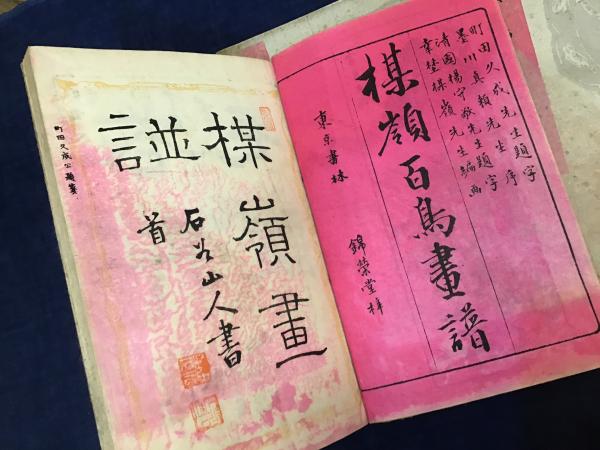 町田久成先生題字
黒川真頼先生序
清國楊守敬先生題字
幸埜楳嶺先生編画
楳嶺百鳥畫譜
東京書林
錦榮堂梓
楳嶺畫
諩
首
石谷山人書